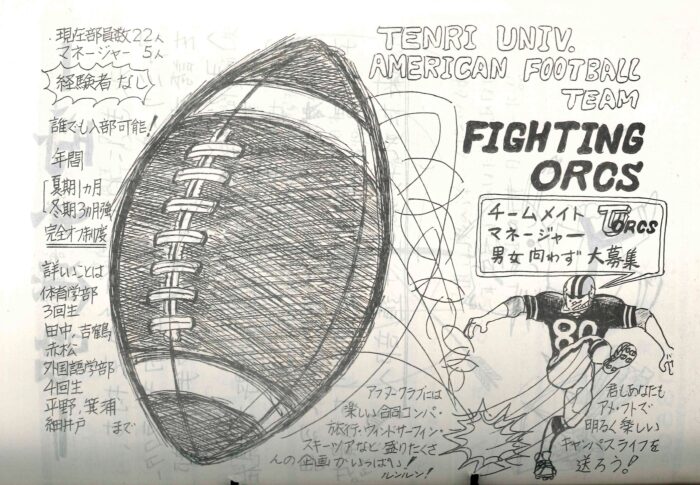 現在部員数22人
マネージャー 5人
経験者なし
誰でも入部可能!
年間
夏期1ヵ月
冬期3ヵ月強
完全オフ制度
詳しいことは
体育学部
3回生
田中,吉鶴
赤松
外国語学部
4回生
平野,箕浦
細井戸 まで
TENRI UNIV.
AMERICAN FOOTBALL
TEAM
FIGHTING
ORCS
チームメイト
マネージャー
男女問わず 大募集
TORCS
80
アフタークラブには
楽しい合同コンパ・
旅行・ウィンドサーフィン・
スキーツアなど 盛りたくさ
んの企画がいっぱい!
ルンルン!
君もあなたも
アメ・フトで
明るく楽しい
キャンパスライフを
送ろう!